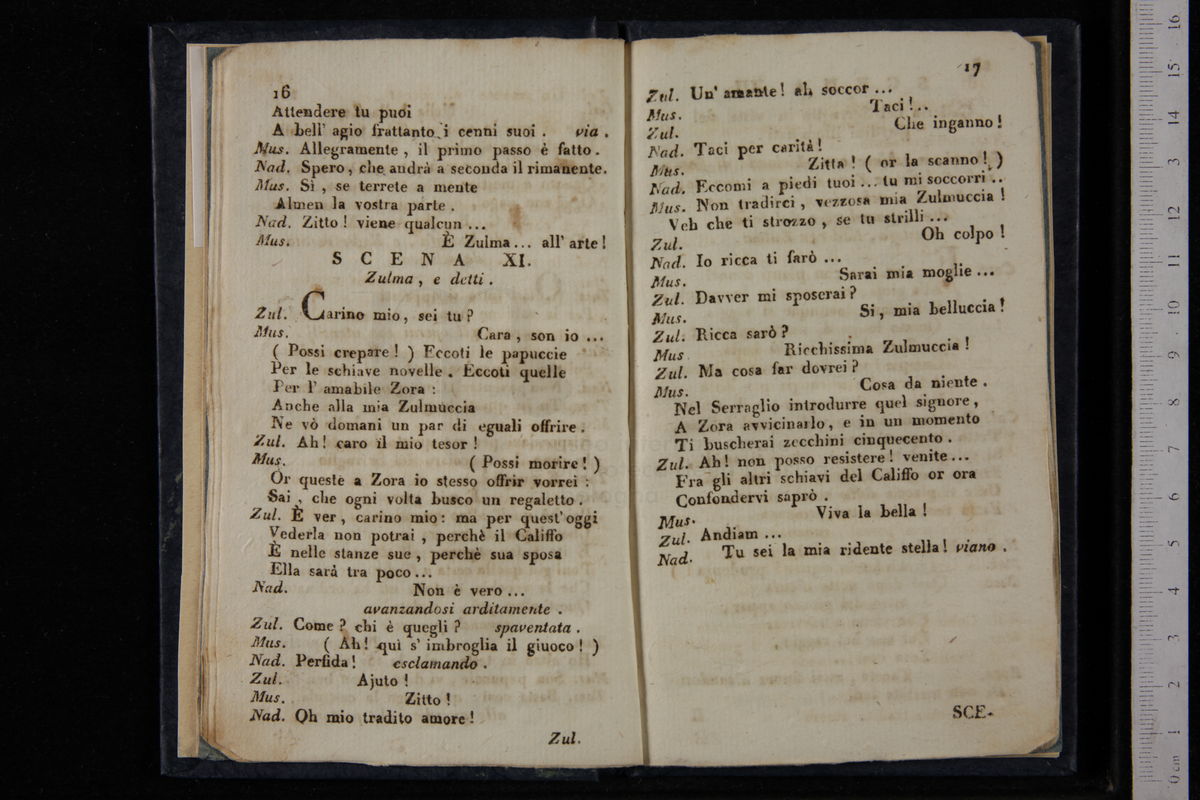 16
Attendere tu puoi
A bell' agio frattanto i cenni suoi . via .
Mus. Allegramente , il primo passo è fatto .
Nad. Spero , che andrà a seconda il rimanente.
Mus. Sì , se terrete a mente
Almen la vostra parte .
Nad. Zitto ! viene qualcun ...
Mus. È Zulma ... all' arte !
SCENA XI.
Zulma , e detti .
Zul. Carino mio , sei tu ?
Mus. Cara , son io ...
( Possi crepare ! ) Eccoti le papuccie
Per le schiave novelle . Eccoti quelle
Per l' amabile Zora :
Anche alla mia Zulmuccia
Ne vò domani un par di eguali offrire .
Zul. Ah ! caro il mio tesor !
Mus. ( Possi morire ! )
Or queste a Zora io stesso offrir vorrei :
Sai , che ogni volta busco un regaletto .
Zul. È ver , carino mio : ma per quest' oggi
Vederla non potrai , perchè il Califfo
È nelle stanze sue , perchè sua sposa
Ella sarà tra poco ...
Nad. Non è vero ...
avanzandosi arditamente .
Zul. Come ? chi è quegli ? spaventata .
Mus. ( Ah ! quì s' imbroglia il giuoco ! )
Nad. Perfida ! esclamando .
Zul. Ajuto !
Mus. Zitto !
Nad. Oh mio tradito amore !
Zul.
17
Zul. Un' amante ! ah soccor ...
Mus. Taci ! ..
Zul. Che inganno !
Nad. Taci per carità !
Mus. Zitta ! ( or la scanno ! )
Nad. Eccomi a piedi tuoi ... tu mi soccorri ..
Mus. Non tradirci , vezzosa mia Zulmuccia !
Veh che ti strozzo , se tu strilli ...
Zul. Oh colpo !
Nad. Io ricca ti farò ...
Mus. Sarai mia moglie ...
Zul. Davver mi sposerai ?
Mus. Si , mia belluccia !
Zul. Ricca sarò ?
Mus . Ricchissima Zulmuccia !
Zul. Ma cosa far dovrei ?
Mus. Cosa da niente .
Nel Serraglio introdurre quel signore ,
A Zora avvicinarlo , e in un momento
Ti buscherai zecchini cinquecento .
Zul. Ah ! non posso resistere ! venite ...
Fra gli altri schiavi del Califfo or ora
Confondervi saprò .
Mus. Viva la bella !
Zul. Andiam ...
Nad. Tu sei la mia ridente stella ! viano .
SCE-
0 cm 1 2 3 4 5 6 7 8 9 10 11 12 13 14 15 16